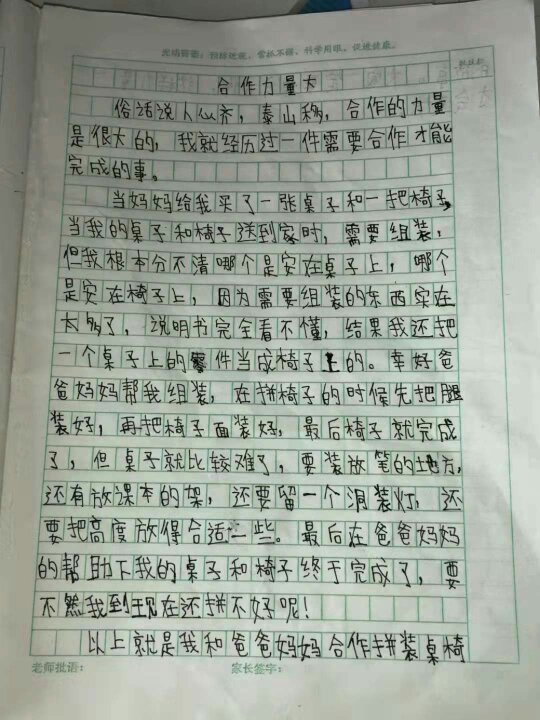 光明寄语：预防近视，常抓不懈，科学用眼，促进健康。
合作力量大
俗话说人心齐，泰山移，合作的力量
是很大的，我就经历过一件需要合作才能
完成的事。
当妈妈给我买了一张桌子和一把椅子，
当我的桌子和椅子送到家时，需要组装，
但我根本分不清哪个是安在桌子上，哪个
是安在椅子上，因为需要组装的东西实在
太多了，说明书完全看不懂，结果我还把
一个桌子上的零件当成椅子上的。幸好爸
爸妈妈帮我组装，在拼椅子的时候先把腿
装好，再把椅子面装好，最后椅子就完成
了，但桌子就比较难了，要装放笔的地方，
还有放课本的架，还要留一个洞装灯，还
要把高度放得合适一些。最后在爸爸妈妈
的帮助下我的桌子和椅子终于完成了，要
不然我到现在还拼不好呢！
以上就是我和爸爸妈妈合作拼装桌椅
老师批语： 家长签字：